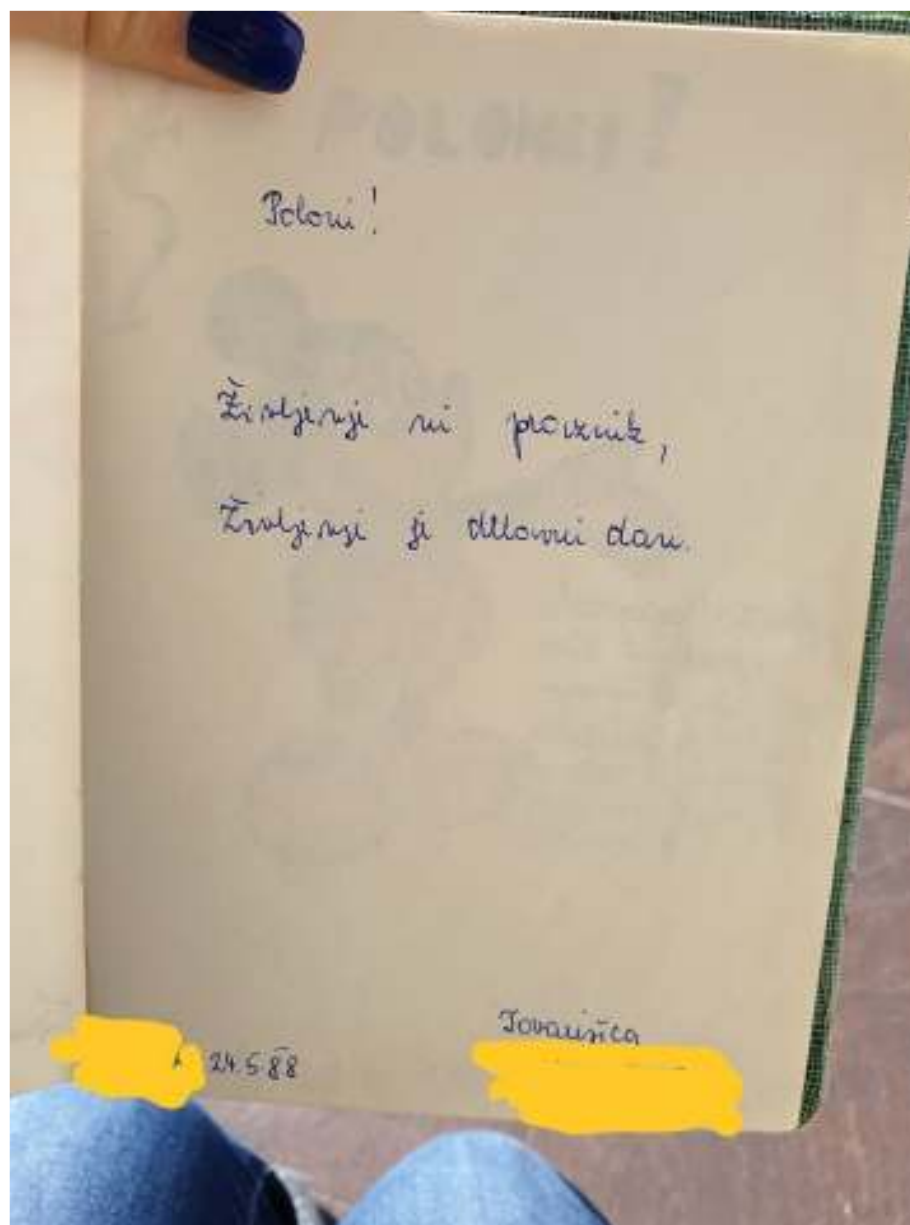 Poloni!
Življenje ni praznik,
Življenje je delovni dan.
Tovarišica
24.5.88